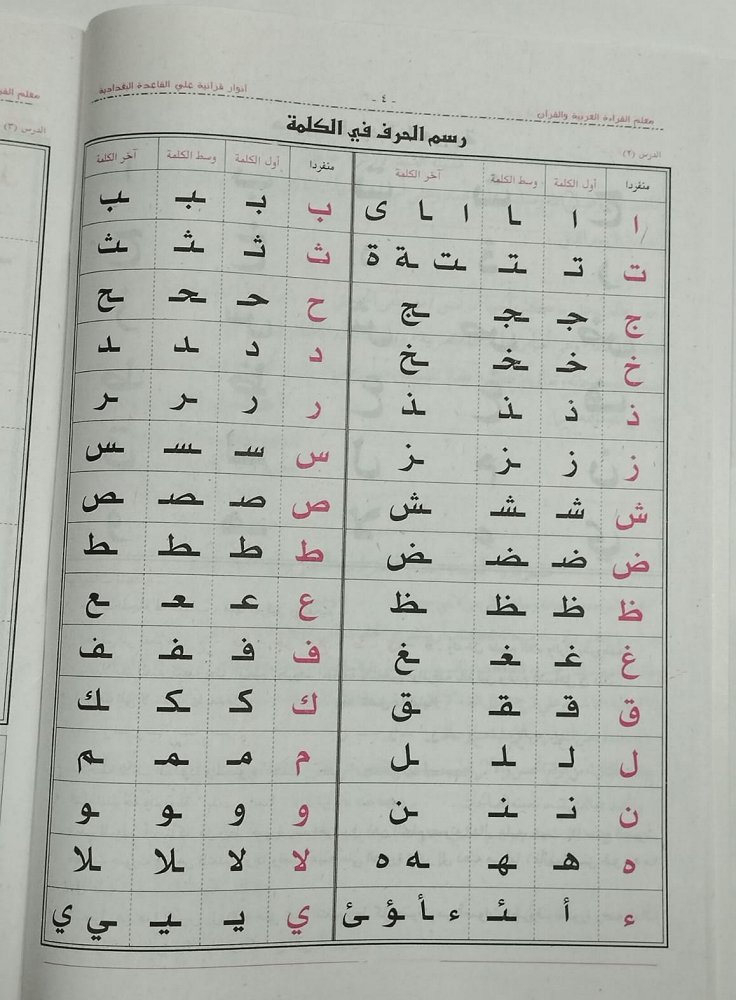 معلم القراءة العربية والقرآن - ٤ - أنوار قرآنية على القاعدة البغدادية
الدرس (٢)
رسم الحرف في الكلمة
منفردا أول الكلمة وسط الكلمة آخر الكلمة منفردا أول الكلمة وسط الكلمة آخر الكلمة
ا ا ـا ا ـا ى ب بـ ـبـ ـب
ت تـ ـتـ ـت ـة ة ث ثـ ـثـ ـث
ج جـ ـجـ ـج ح حـ ـحـ ـح
خ خـ ـخـ ـخ د د ـد ـد
ذ ذ ـذ ـذ ر ر ـر ـر
ز ز ـز ـز س سـ ـسـ ـس
ش شـ ـشـ ـش ص صـ ـصـ ـص
ض ضـ ـضـ ـض ط ط ـطـ ـط
ظ ظ ـظـ ـظ ع عـ ـعـ ـع
غ غـ ـغـ ـغ ف فـ ـفـ ـف
ق قـ ـقـ ـق ك كـ ـكـ ـك
ل لـ ـلـ ـل م مـ ـمـ ـم
ن نـ ـنـ ـن و و ـو ـو
ه هـ ـهـ ـه ه لا لا ـلا ـلا
ء أ ـئـ ء ـأ ـؤ ـئ ي يـ ـيـ ـي ي
الدرس (٣)